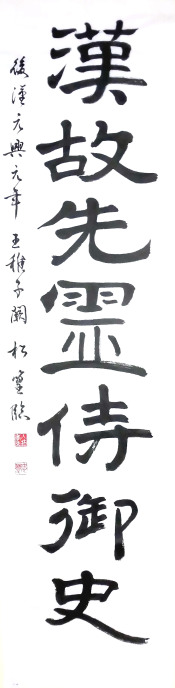 漢故先霊侍御史
後漢元興元年 王稚子闕 松雲臨